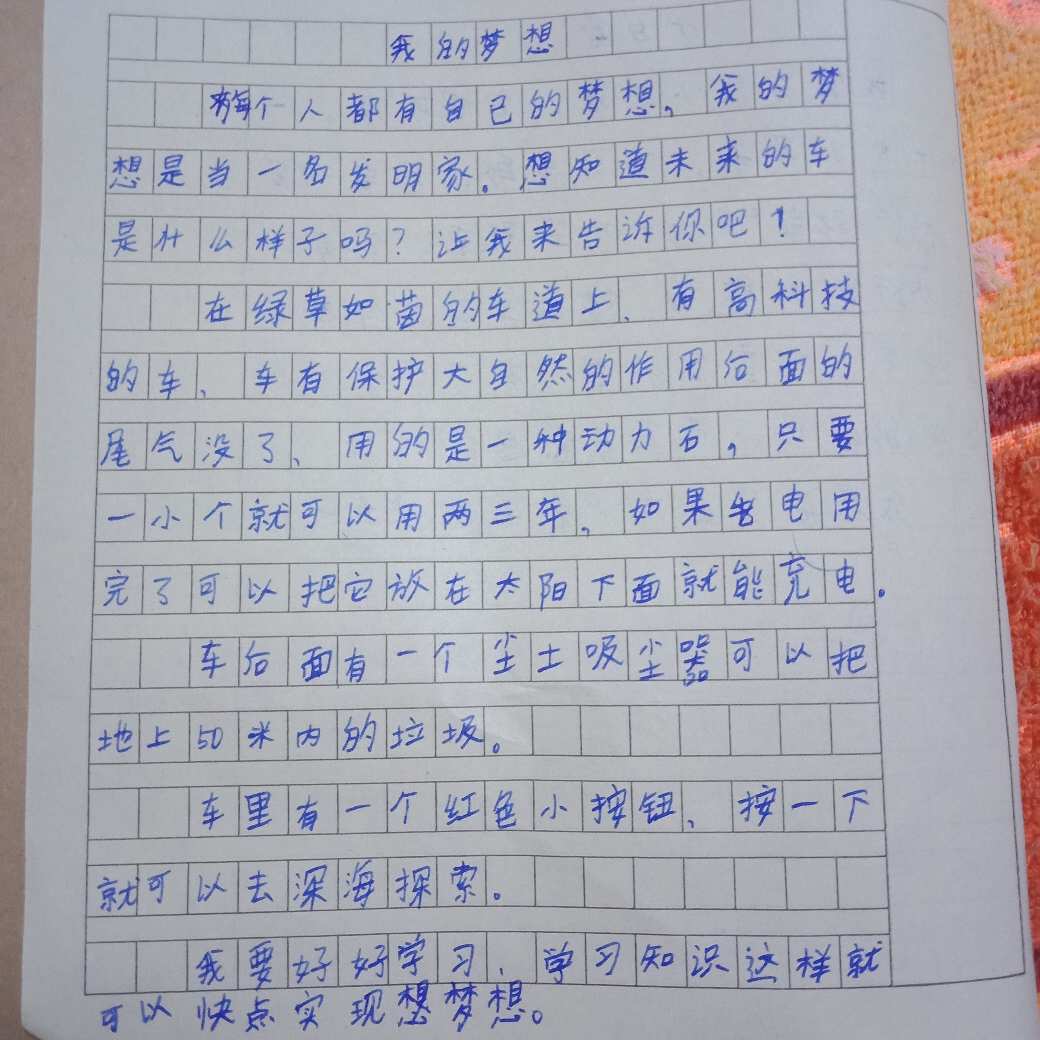 我的梦想
每个人都有自己的梦想，我的梦
想是当一名发明家。想知道未来的车
是什么样子吗？让我来告诉你吧！
在绿草如茵的车道上、有高科技
的车、车有保护大自然的作用后面的
尾气没了、用的是一种动力石，只要
一小个就可以用两三年，如果电用
完了可以把它放在太阳下面就能充电。
车后面有一个尘土吸尘器可以把
地上50米内的垃圾。
车里有一个红色小按钮、按一下
就可以去深海探索。
我要好好学习、学习知识这样就
可以快点实现梦想。